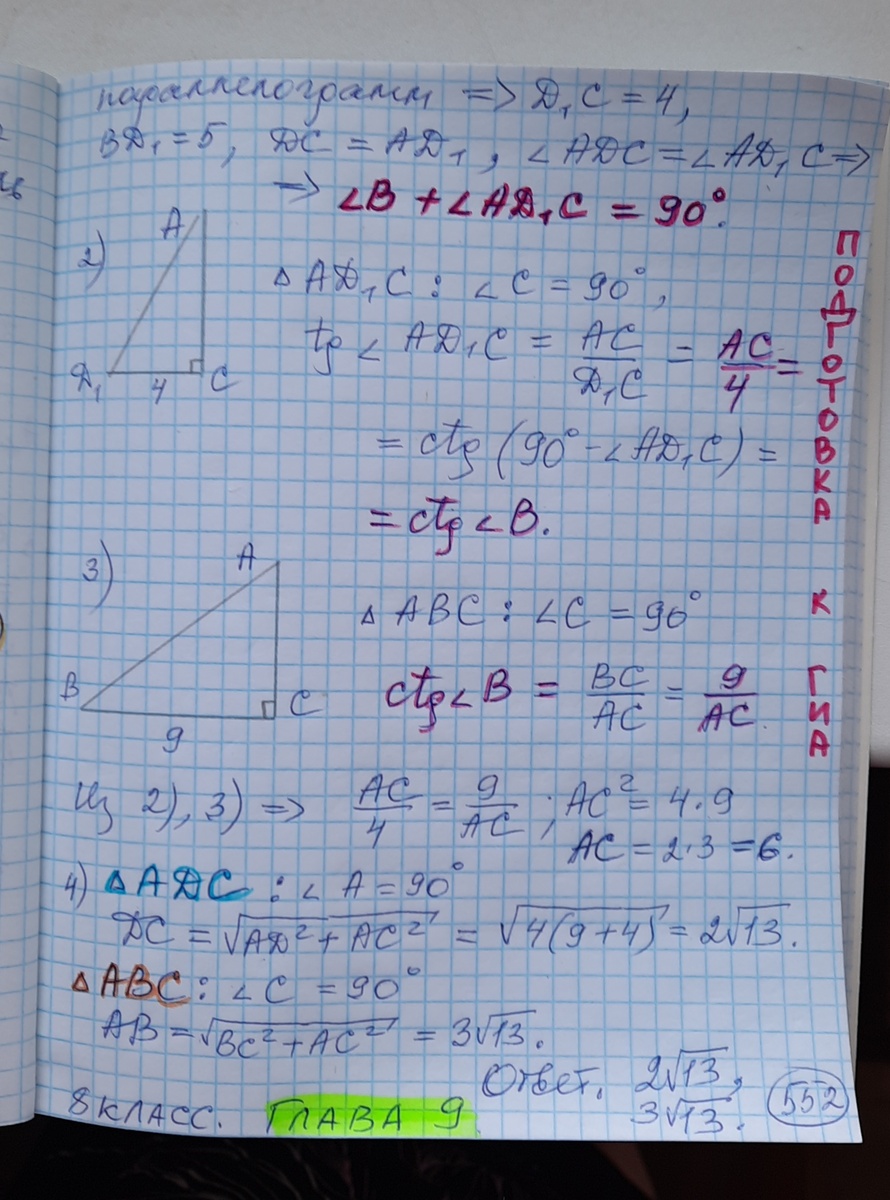 параллелограмм => D₁C = 4,
BD₁ = 5, DC = AD₁, ∠ADC = ∠AD₁C =>
=> ∠B + ∠AD₁C = 90°.
2)
A
D₁ 4 C
△ AD₁C : ∠C = 90°,
tg ∠ AD₁C = AC/D₁C = AC/4 =
= ctg (90° - ∠AD₁C) =
= ctg ∠B.
3)
A
B 9 C
△ ABC : ∠C = 90°
ctg ∠B = BC/AC = 9/AC.
Из 2), 3) => AC/4 = 9/AC ; AC² = 4·9
AC = 2·3 = 6.
4) △ADC : ∠ A = 90°
DC = √(AD² + AC²) = √(4(9+4)) = 2√13.
△ABC : ∠C = 90°
AB = √(BC² + AC²) = 3√13.
Ответ. 2√13,
3√13.
552
8 КЛАСС. ГЛАВА 9.
ПОДГОТОВКА К ГИА